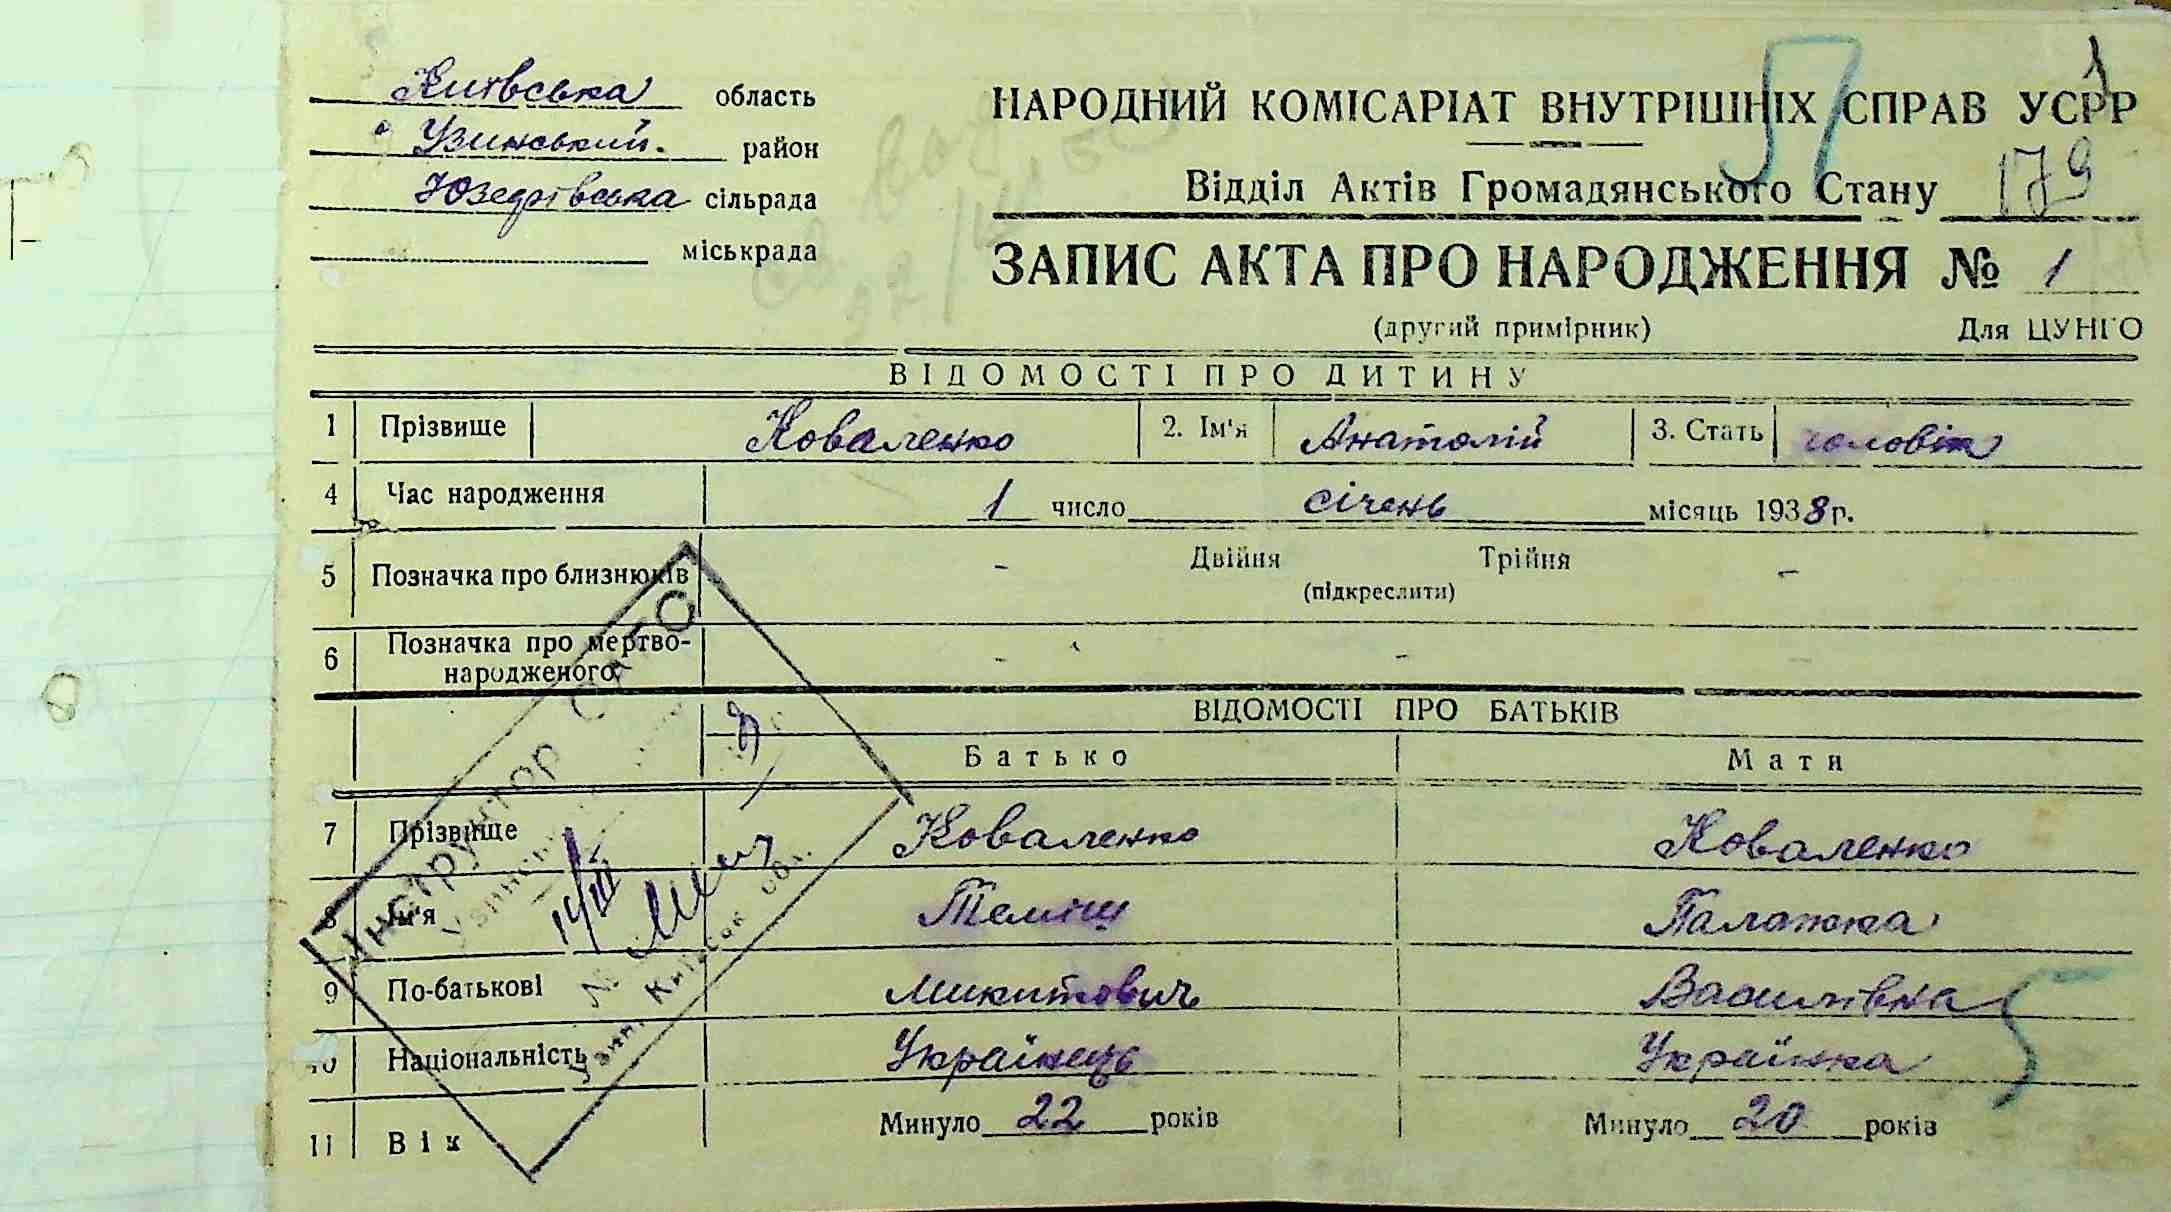 Київська область
Узинський район
Юзефівська сільрада
міськрада
НАРОДНИЙ КОМІСАРІАТ ВНУТРІШНІХ СПРАВ УСРР
Відділ Актів Громадянського Стану 179
ЗАПИС АКТА ПРО НАРОДЖЕННЯ № 1
(другий примірник) Для ЦУНГО
ВІДОМОСТІ ПРО ДИТИНУ
1 Прізвище Коваленко 2. Ім'я Анатолій 3. Стать чоловік
4 Час народження 1 число січень місяць 1938 р.
5 Позначка про близнюків - Двійня Трійня -
(підкреслити)
6 Позначка про мертво-
народженого - -
ВІДОМОСТІ ПРО БАТЬКІВ
Батько Мати
7 Прізвище Коваленко Коваленко
8 Ім'я Палажка
9 По-батькові Микитович Василівна
10 Національність Українець Українка
11 Вік Минуло 22 років Минуло 20 років
Інструктор
14/III
5